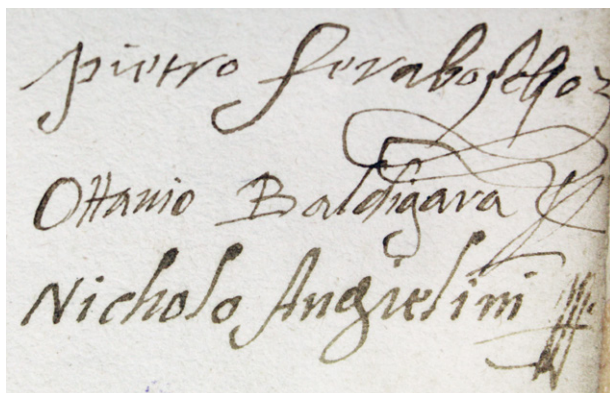 Pietro feraboscho
Ottauio Baldigara
Nicholo Angielini